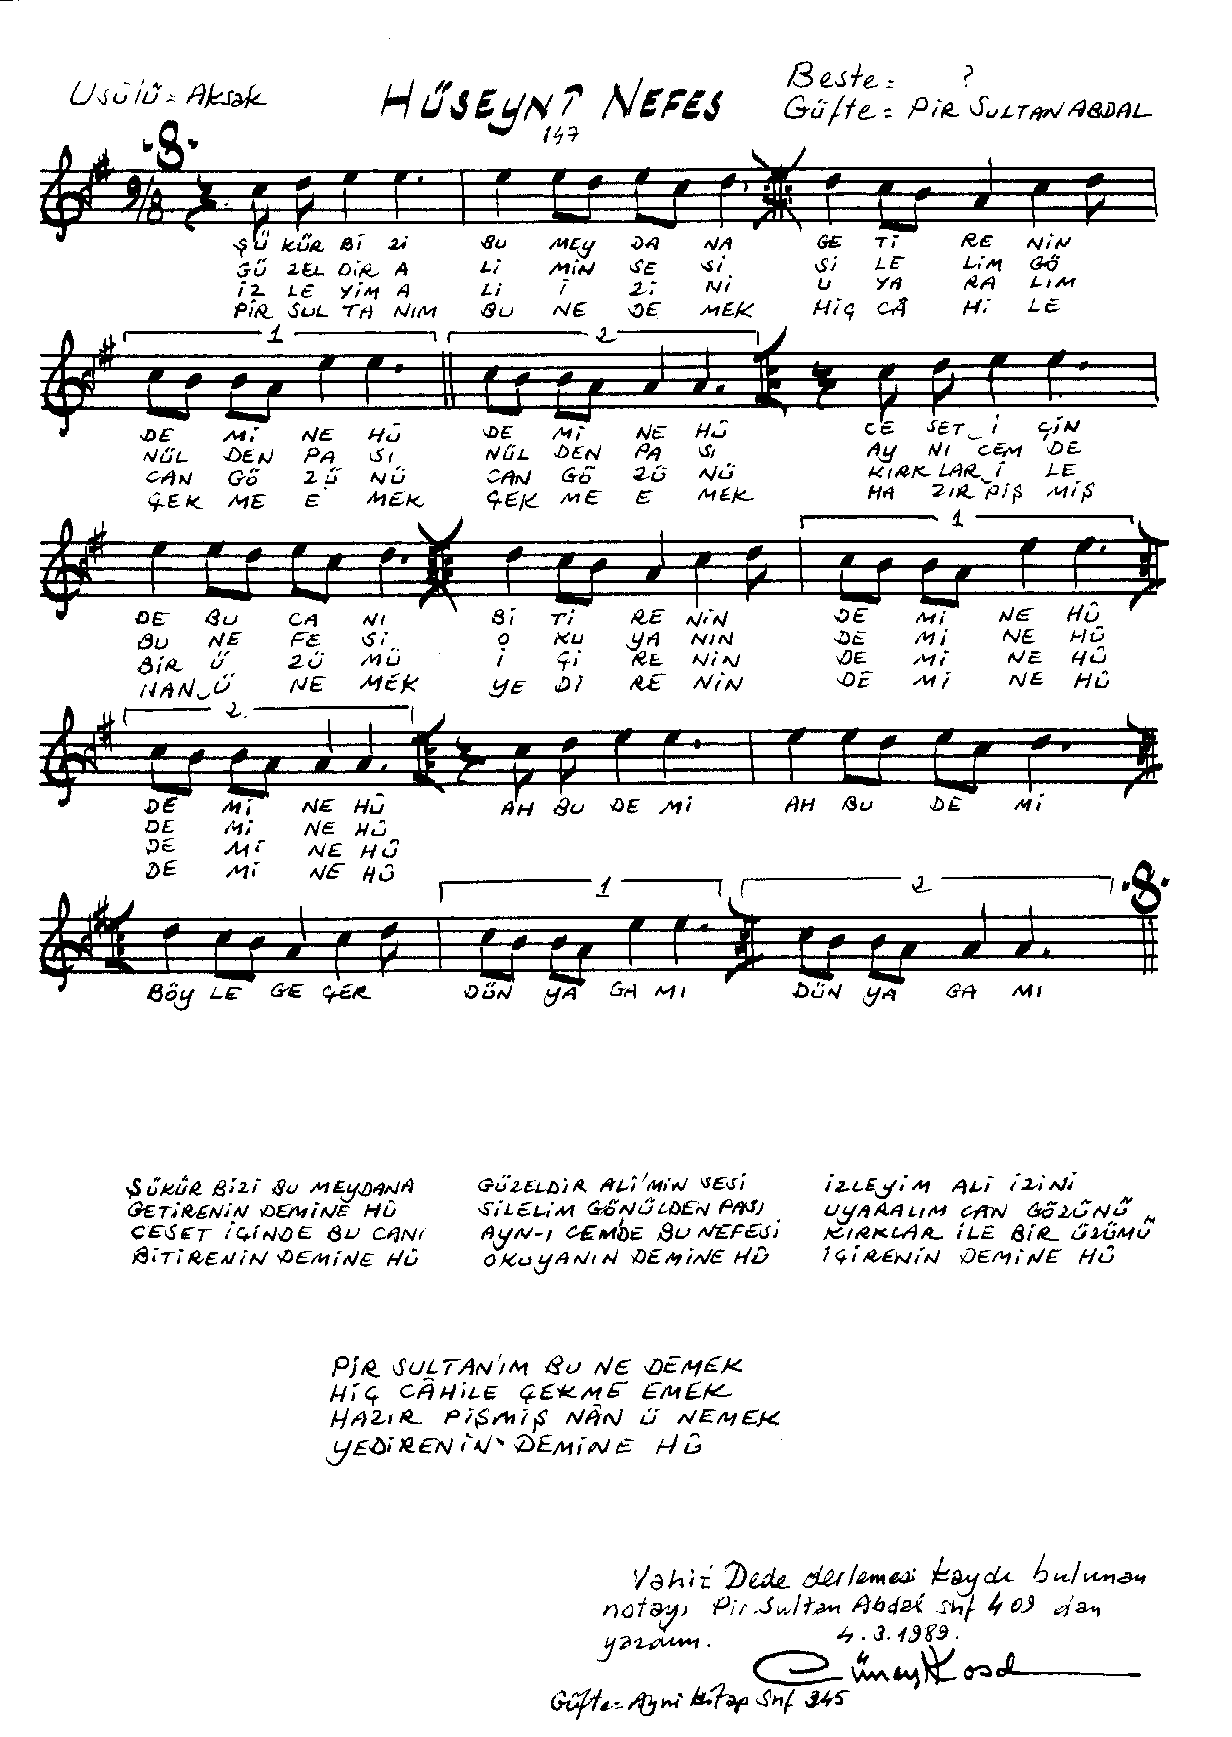 Usûlü = Aksak
HÜSEYNÎ NEFES
147
Beste = ?
Güfte = PİR SULTAN ABDAL
9/8
ŞÜ KÜR Bİ Zİ BU MEY DA NA GE Tİ RE NİN
GÜ ZEL DİR A Lİ MİN SE Sİ Sİ LE LİM GÖ
İZ LE YİM A Lİ İ Zİ Nİ U YA RA LIM
PİR SUL TA NIM BU NE DE MEK HİÇ CÂ Hİ LE
1 2
DE Mİ NE HÛ DE Mİ NE HÛ CE SET İ ÇİN
NÜL DEN PA SI NÜL DEN PA SI AY NI CEM DE
CAN GÖ ZÜ NÜ CAN GÖ ZÜ NÜ KIRK LAR İ LE
ÇEK ME E MEK ÇEK ME E MEK HA ZIR PİŞ MİŞ
1
DE BU CA NI Bİ Tİ RE NİN DE Mİ NE HÛ
BU NE FE Sİ O KU YA NIN DE Mİ NE HÛ
BİR Ü ZÜ MÜ İ Çİ RE NİN DE Mİ NE HÛ
NAN Ü NE MEK YE Dİ RE NİN DE Mİ NE HÛ
2
DE Mİ NE HÛ AH BU DE Mİ AH BU DE Mİ
DE Mİ NE HÛ
DE Mİ NE HÛ
DE Mİ NE HÛ
1 2
BÖY LE GE ÇER DÜN YA GA MI DÜN YA GA MI
ŞÜKÜR BİZİ BU MEYDANA
GETİRENİN DEMİNE HÛ
CESET İÇİNDE BU CANI
BİTİRENİN DEMİNE HÛ
GÜZELDİR ALİ'MİN SESİ
SİLELİM GÖNÜLDEN PASI
AYN-I CEMDE BU NEFESİ
OKUYANIN DEMİNE HÛ
İZLEYİM ALİ İZİNİ
UYARALIM CAN GÖZÜNÜ
KIRKLAR İLE BİR ÜZÜMÜ
İÇİRENİN DEMİNE HÛ
PİR SULTAN'IM BU NE DEMEK
HİÇ CÂHİLE ÇEKME EMEK
HAZIR PİŞMİŞ NÂN Ü NEMEK
YEDİRENİN DEMİNE HÛ
Vahit Dede derlemesi kaydı bulunan
notayı Pir Sultan Abdal shf 409 dan
yazdım. 4.3.1989.
Güfte = Ayni kitap shf 345